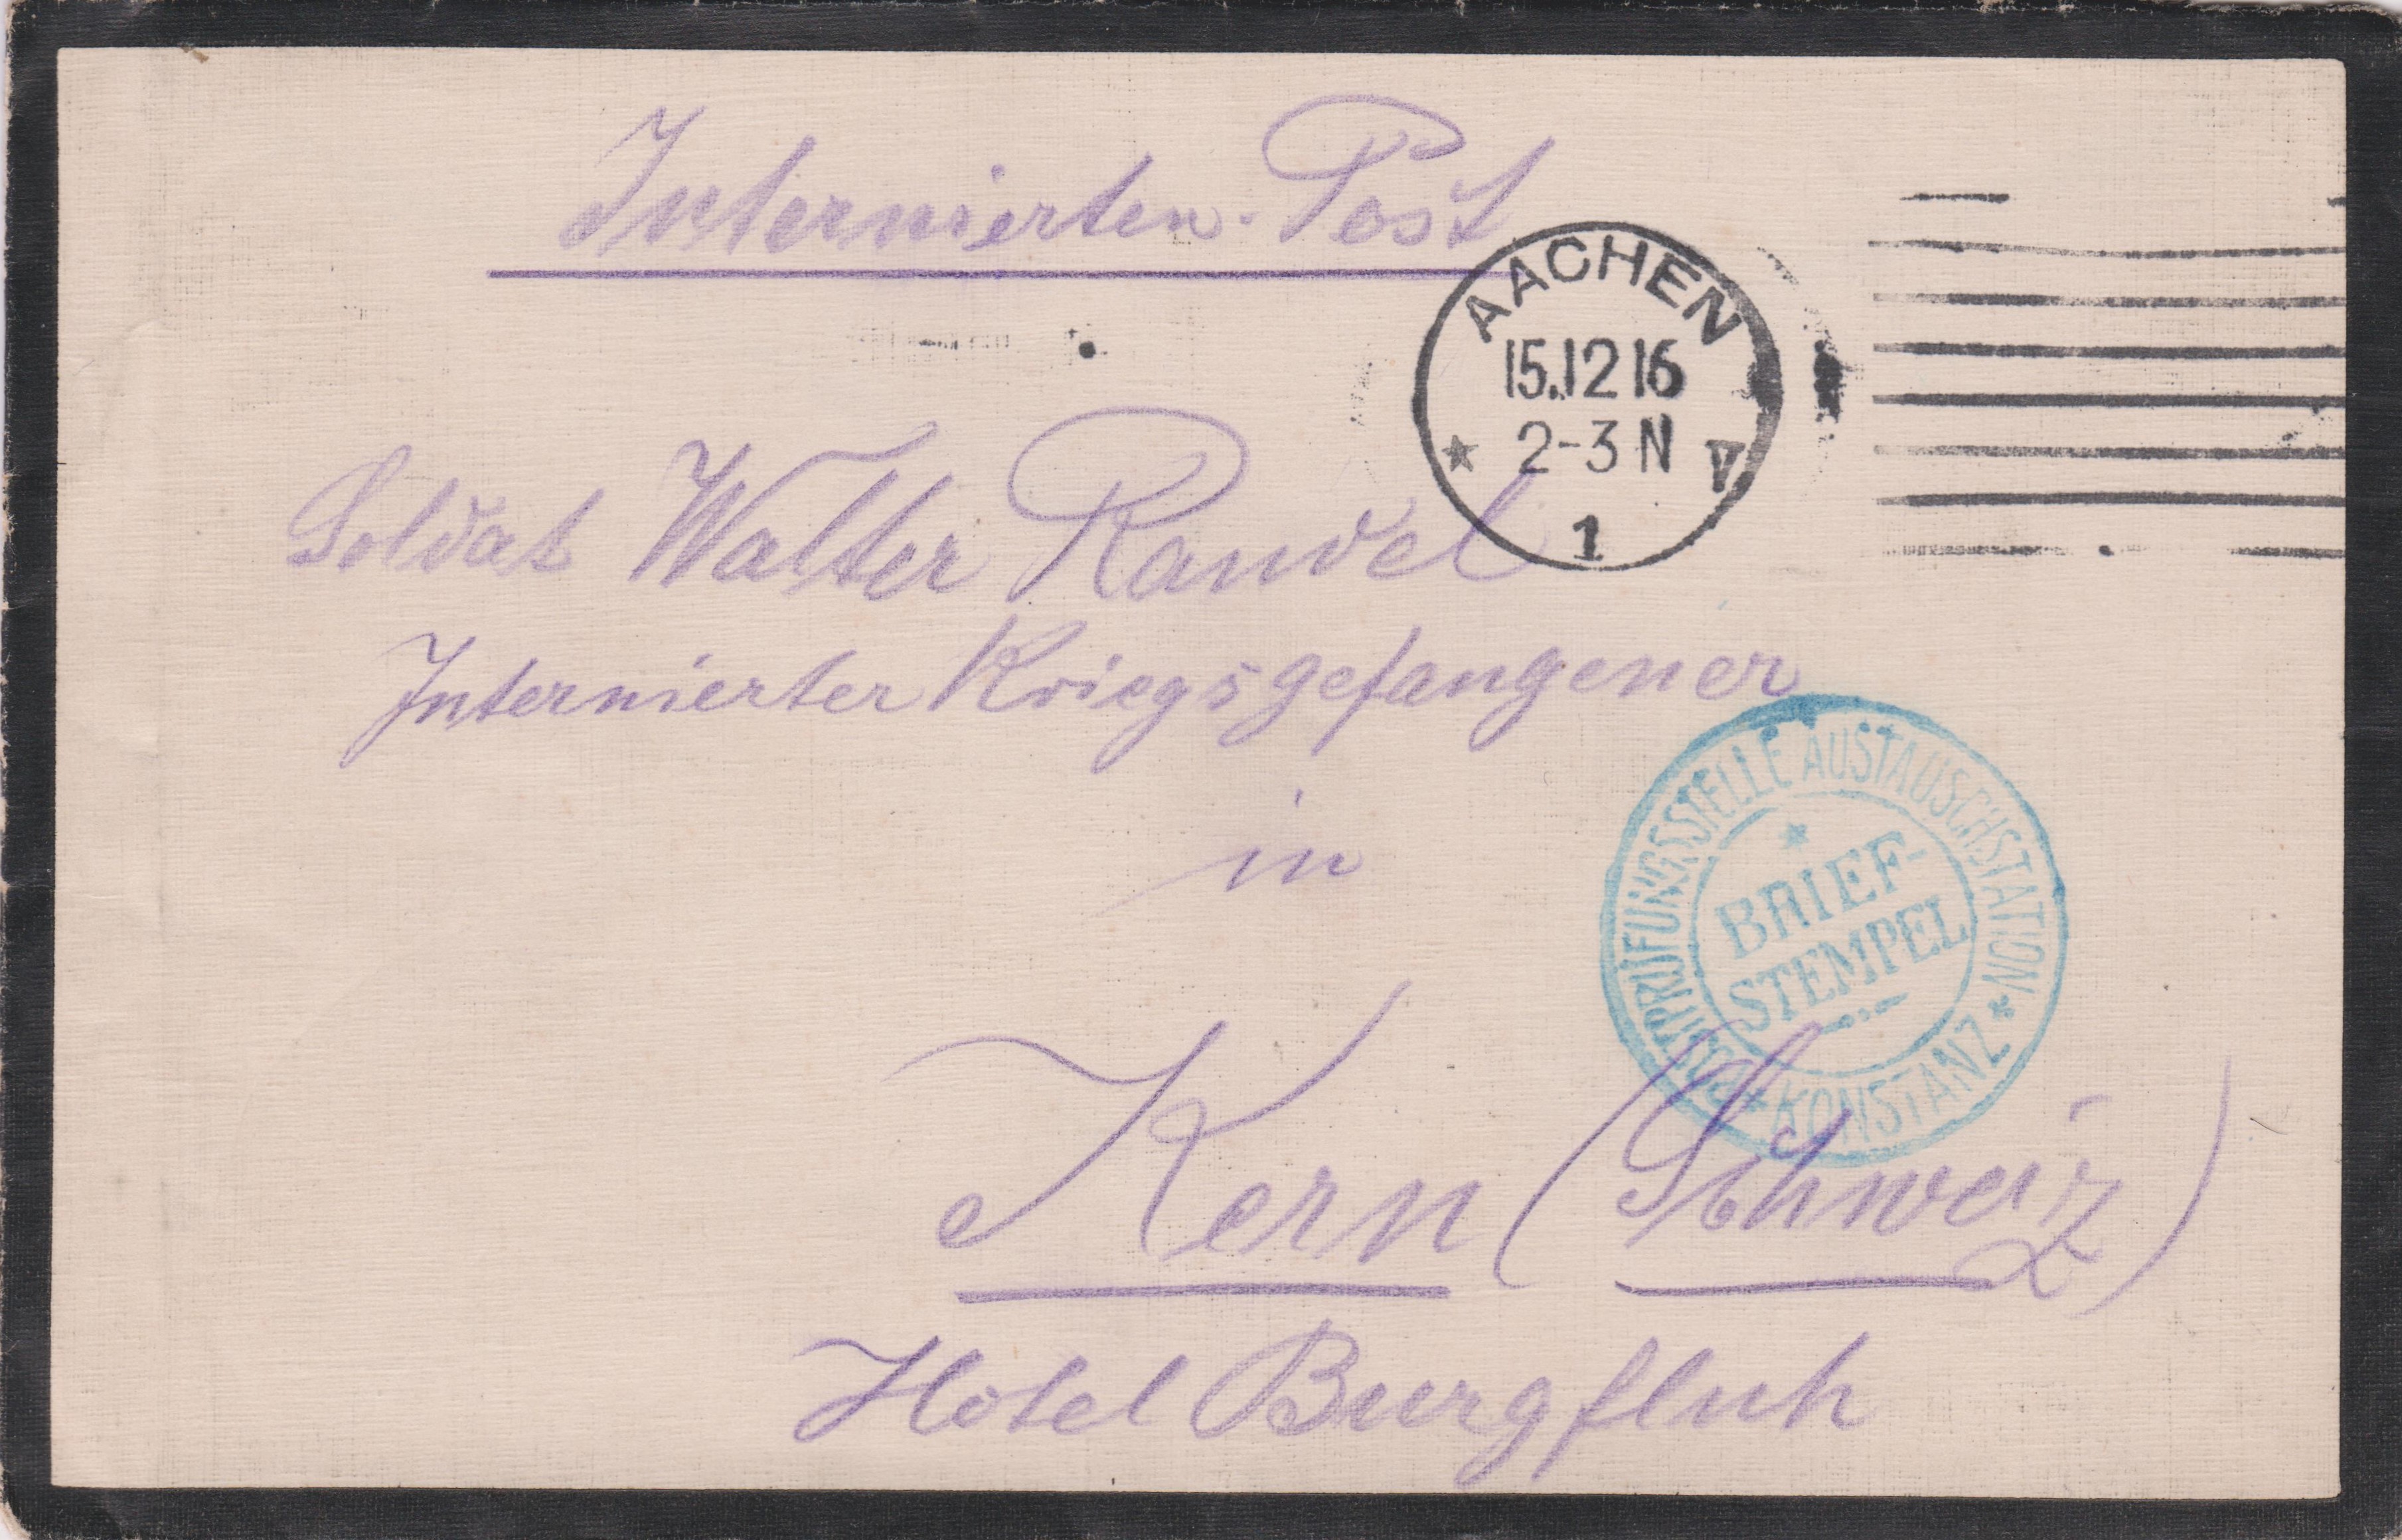 Internierten-Post
AACHEN
15.12 16
2-3 N
* V
1
Soldat Walter Randel
Internierter Kriegsgefangener
in
POSTPRÜFUNGSSTELLE AUSTAUSCHSTATION
* KONSTANZ *
BRIEF-
STEMPEL
Kern (Schweiz)
Hotel Burgfluh